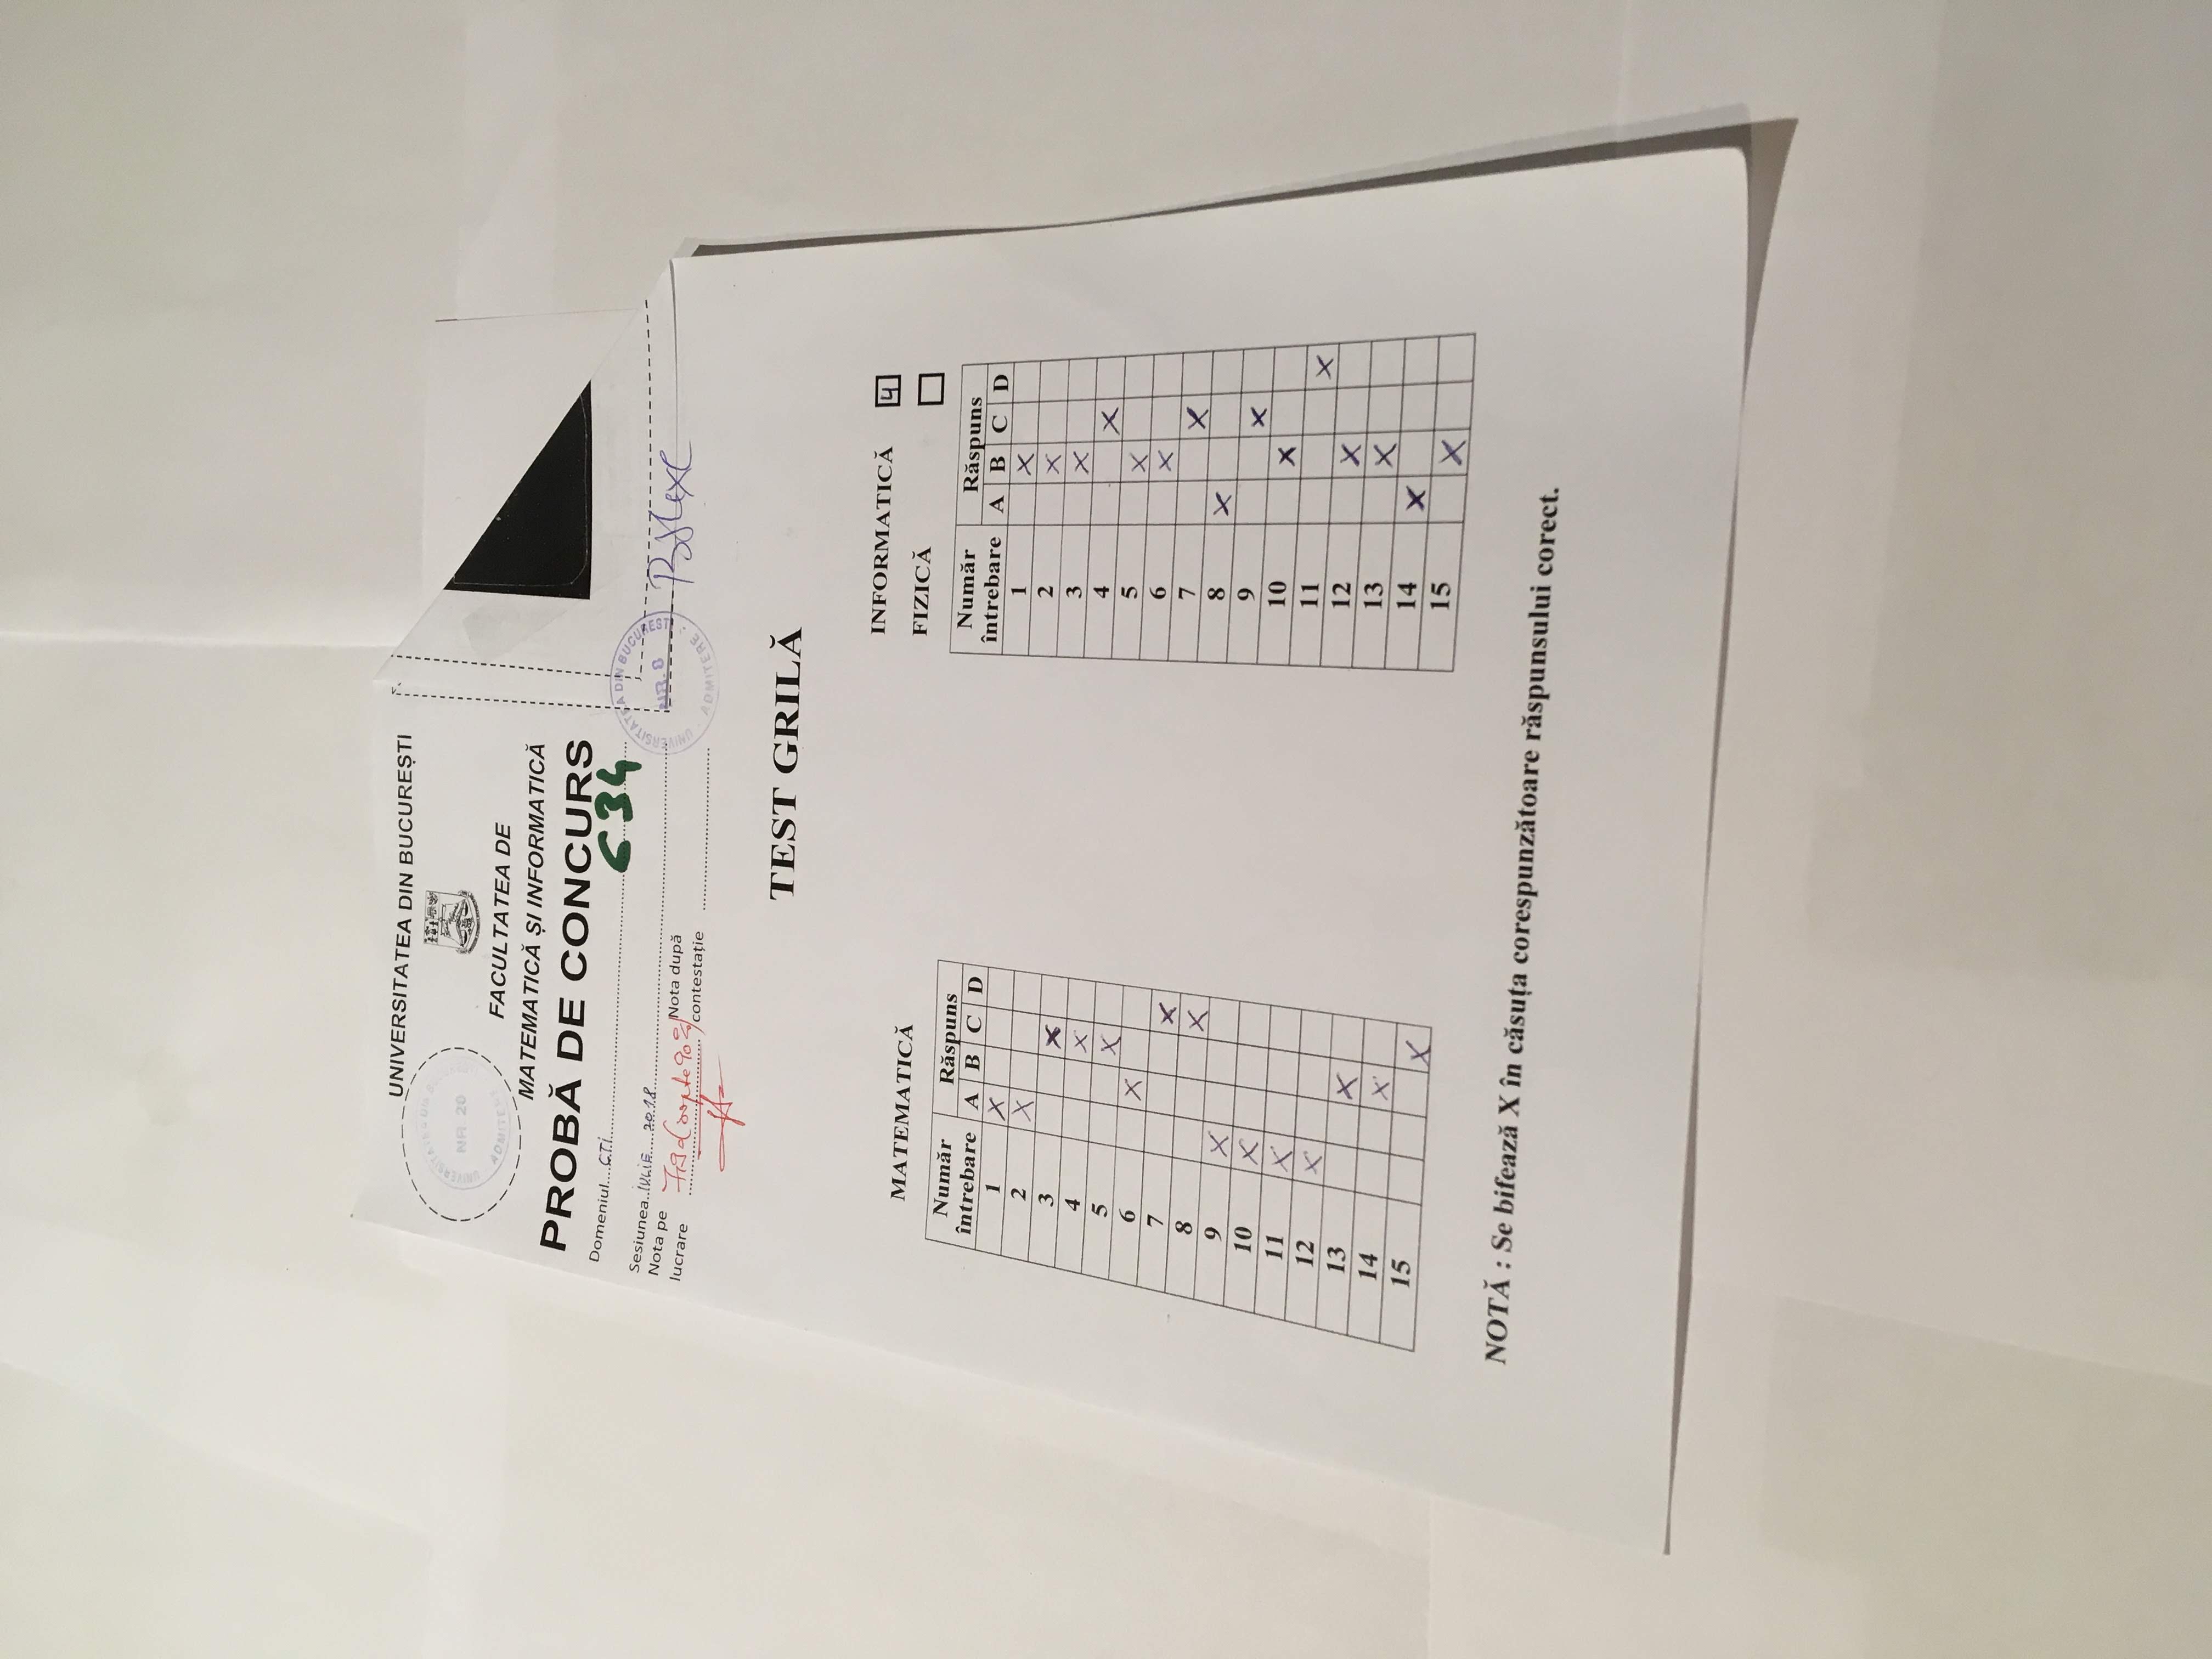 UNIVERSITATEA DIN BUCUREȘTI
NR. 20
ADMITERE
FACULTATEA DE
MATEMATICĂ ȘI INFORMATICĂ
PROBĂ DE CONCURS
Domeniul....CTi.... 634
Sesiunea..iULiE 2018....
Nota pe lucrare 7,90 (șapte 90%)
Nota după contestație
UNIVERSITATEA DIN BUCUREȘTI
NR. 8
ADMITERE
TEST GRILĂ
MATEMATICĂ
Număr întrebare Răspuns
A B C D
1 X
2 X
3 X
4 X
5 X
6 X
7 X
8 X
9 X
10 X
11 X
12 X
13 X
14 X
15 X
INFORMATICĂ 4
FIZICĂ
Număr întrebare Răspuns
A B C D
1 X
2 X
3 X
4 X
5 X
6 X
7 X
8 X
9 X
10 X
11 X
12 X
13 X
14 X
15 X
NOTĂ : Se bifează X în căsuța corespunzătoare răspunsului corect.